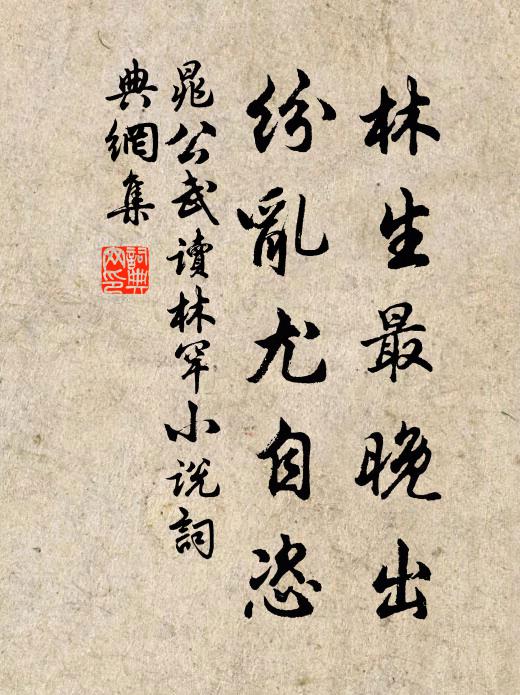 林生最晚出
紛亂尤自恣
晁公武讀林罕小說詞
典網集
詞典